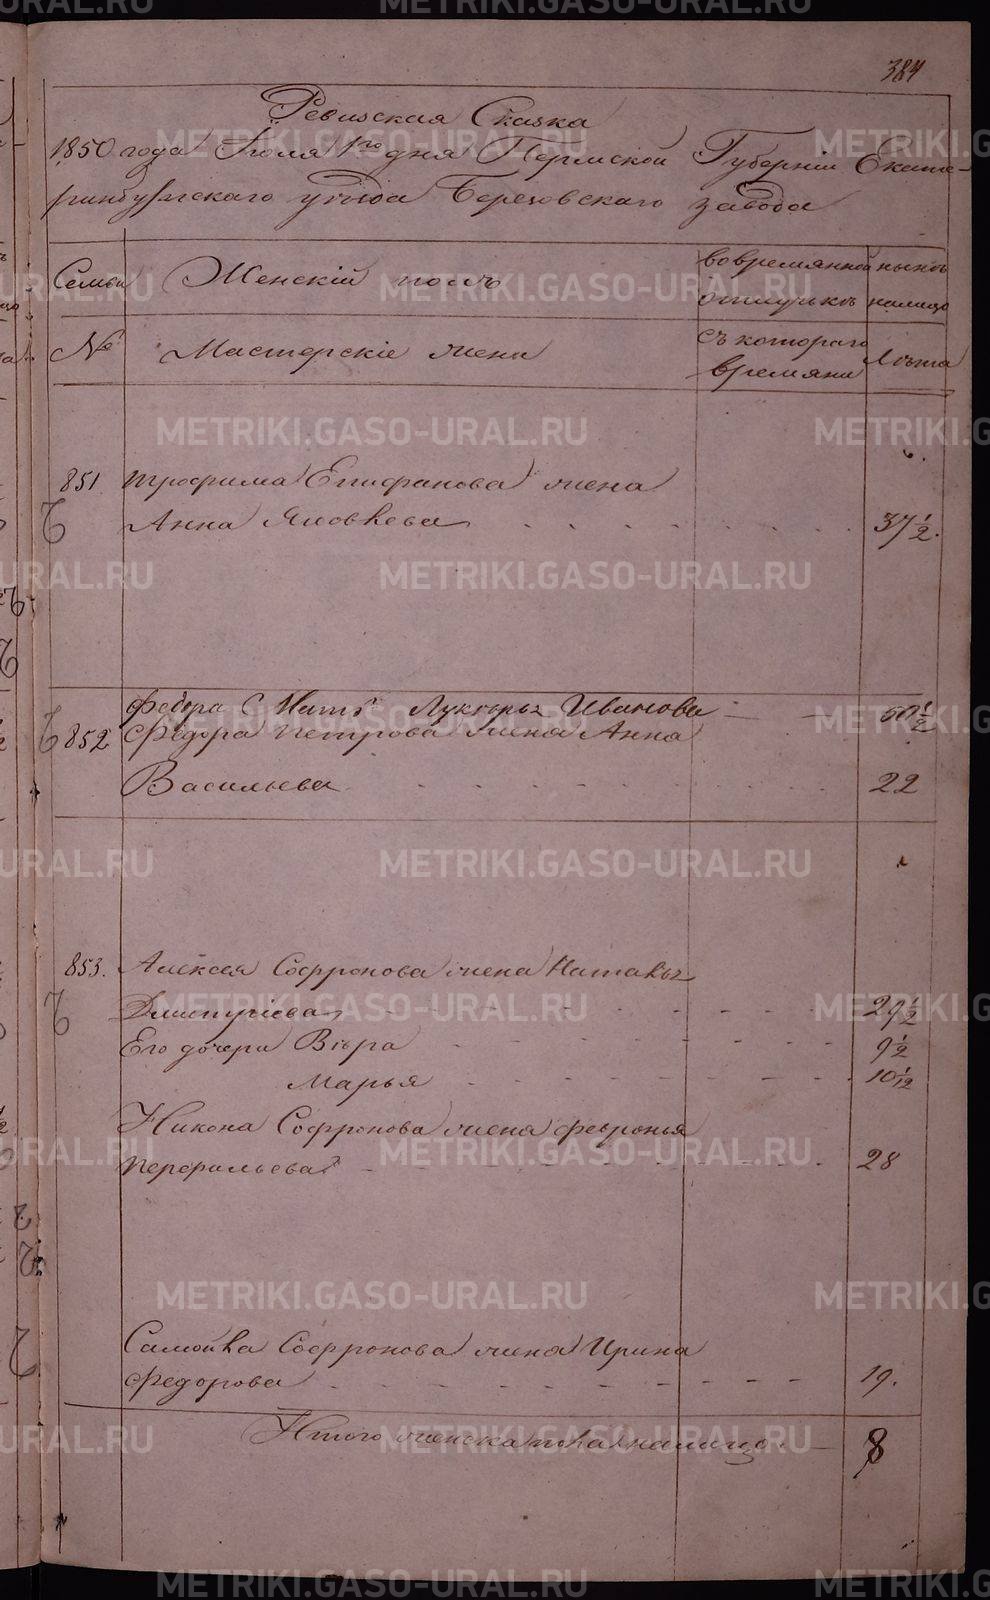 384
Ревизская Сказка
1850 года Июля 1го дня Пермской Губернии Екате-
ринбургскаго уѣзда Березовскаго завода
Семьи Женскій полъ во временной отлучкѣ нынѣ налицо
№ Мастерскіе жены съ котораго времяни Лѣта
851. Трофима Епифанова жена
Анна Яковлева 37 1/2.
Федора Мать Лукерья Иванова 60 1/2
852 Федора Петрова жена Анна
Васильева 22
853. Алексея Софронова жена Наталья
Дмитріева 29 1/2
Его дочери Вѣра 9 1/2
Марья 10/12
Никона Софронова жена Февронья
Перфильева 28
Самойла Софронова жена Ирина
Федорова 19.
Итого женска пола налицо 8
METRIKI.GASO-URAL.RU